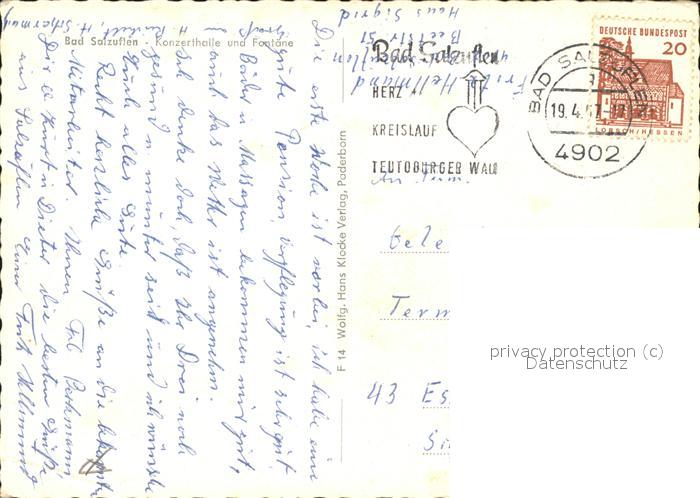 Bad Salzuflen - Konzerthalle und Fontäne
Die erste Woche ist vorbei, ich habe eine
gute Pension, Verpflegung ist sehr gut.
Bäder u. Massagen bekommen mir gut,
auch das Wetter ist angenehm.
Ich denke doch, daß Ihr Drei noch
gesund u. munter seid und ich wünsche
Euch alles Gute.
Recht herzliche Grüße an die
Mitarbeiter. Ihnen Frl.
Dir u. Kurt u. Dieter die besten Grüße
aus Salzuflen Euer Fritz Hellmund
F 14 Wolfg. Hans Klocke Verlag, Paderborn
Fritz Hellmund
Haus Sigrid
Bad Salzuflen
HERZ
KREISLAUF
TEUTOBURGER WALD
BAD SALZUFLEN
19.4.67
4902
DEUTSCHE BUNDESPOST
20
LORSCH/HESSEN
Tele
Term
43 Es
privacy protection (c)
Datenschutz